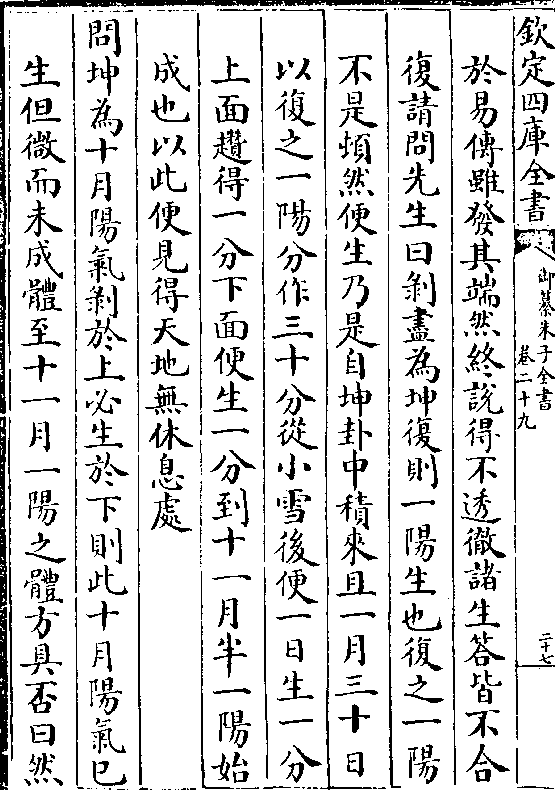 欽定四庫全書
御纂朱子全書
卷二十九
二十七
於易傳雖發其端然終說得不透徹諸生答皆不合
復請問先生曰剝盡為坤復則一陽生也復之一陽
不是頓然便生乃是自坤卦中積來且一月三十日
以復之一陽分作三十分從小雪後便一日生一分
上面趲得一分下面便生一分到十一月半一陽始
成也以此便見得天地無休息處
問坤為十月陽氣剝於上必生於下則此十月陽氣已
生但微而未成體至十一月一陽之體方具否曰然